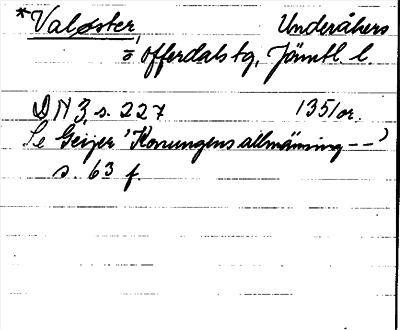 *Valøster, Underåkers
o Offerdals tg, Jämtl. l.
DN 3, s. 227 1351 or.
Se Geijer 'Konungens allmänning--'
s. 63 f.